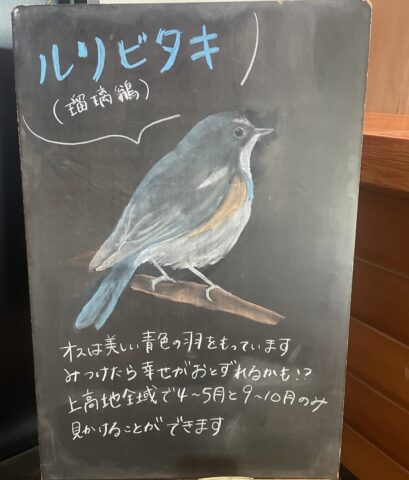 ルリビタキ
(瑠璃鶲)
オスは美しい青色の羽をもっています
みつけたら幸せがおとずれるかも!?
上高地全域で4~5月と9~10月のみ
見かけることができます